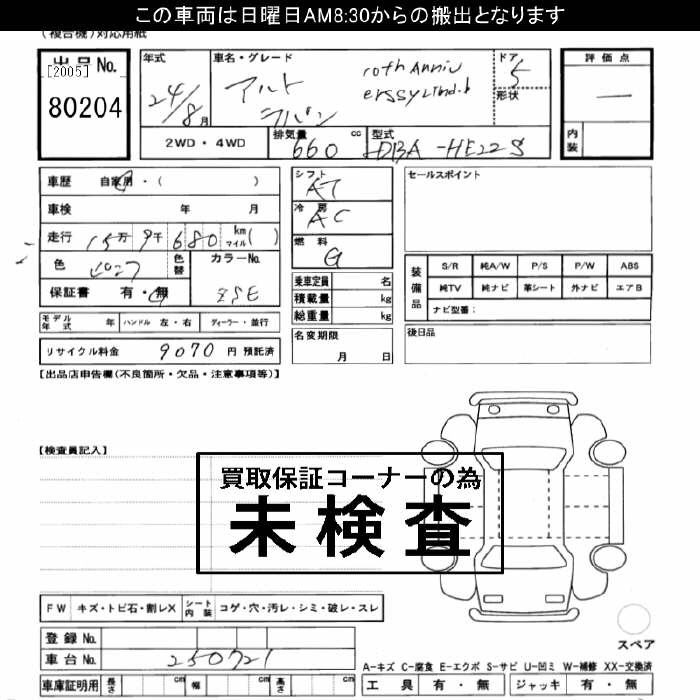 この車両は日曜日AM8:30からの搬出となります
(複合機)対応用紙
出品No.
[2005]
80204
年式
24/8月
車名・グレード
アルト
ラパン
10th Anniv
ドア
5
形状
評価点
―
内装
2WD・4WD
排気量
660
cc
型式
DBA-HE22S
車歴 自家用・( )
車検 年 月
走行 15万9千680 km マイル( )
色
色替
カラーNo.
ZSE
保証書 有・無
シフト
AT
冷房
AC
燃料
G
乗車定員 名
積載量 kg
総重量 kg
セールスポイント
装備品
S/R 純A/W P/S P/W ABS
純TV 純ナビ 革シート 外ナビ エアB
ナビ型番:
モデル年式 年 ハンドル 左・右 ディーラー・並行
リサイクル料金 9070 円 預託済
名変期限
月 日
後日品
【出品店申告欄(不良箇所・欠品・注意事項等)】
【検査員記入】
買取保証コーナーの為
未検査
FW キズ・トビ石・割レX シート内装 コゲ・穴・汚レ・シミ・破レ・スレ
登録No.
車台No. 250721
車庫証明用 長さ cm 幅 cm 高さ cm
スペア
A-キズ C-腐食 E-エクボ S-サビ U-凹ミ W-補修 XX-交換済
工具 有・無 ジャッキ 有・無